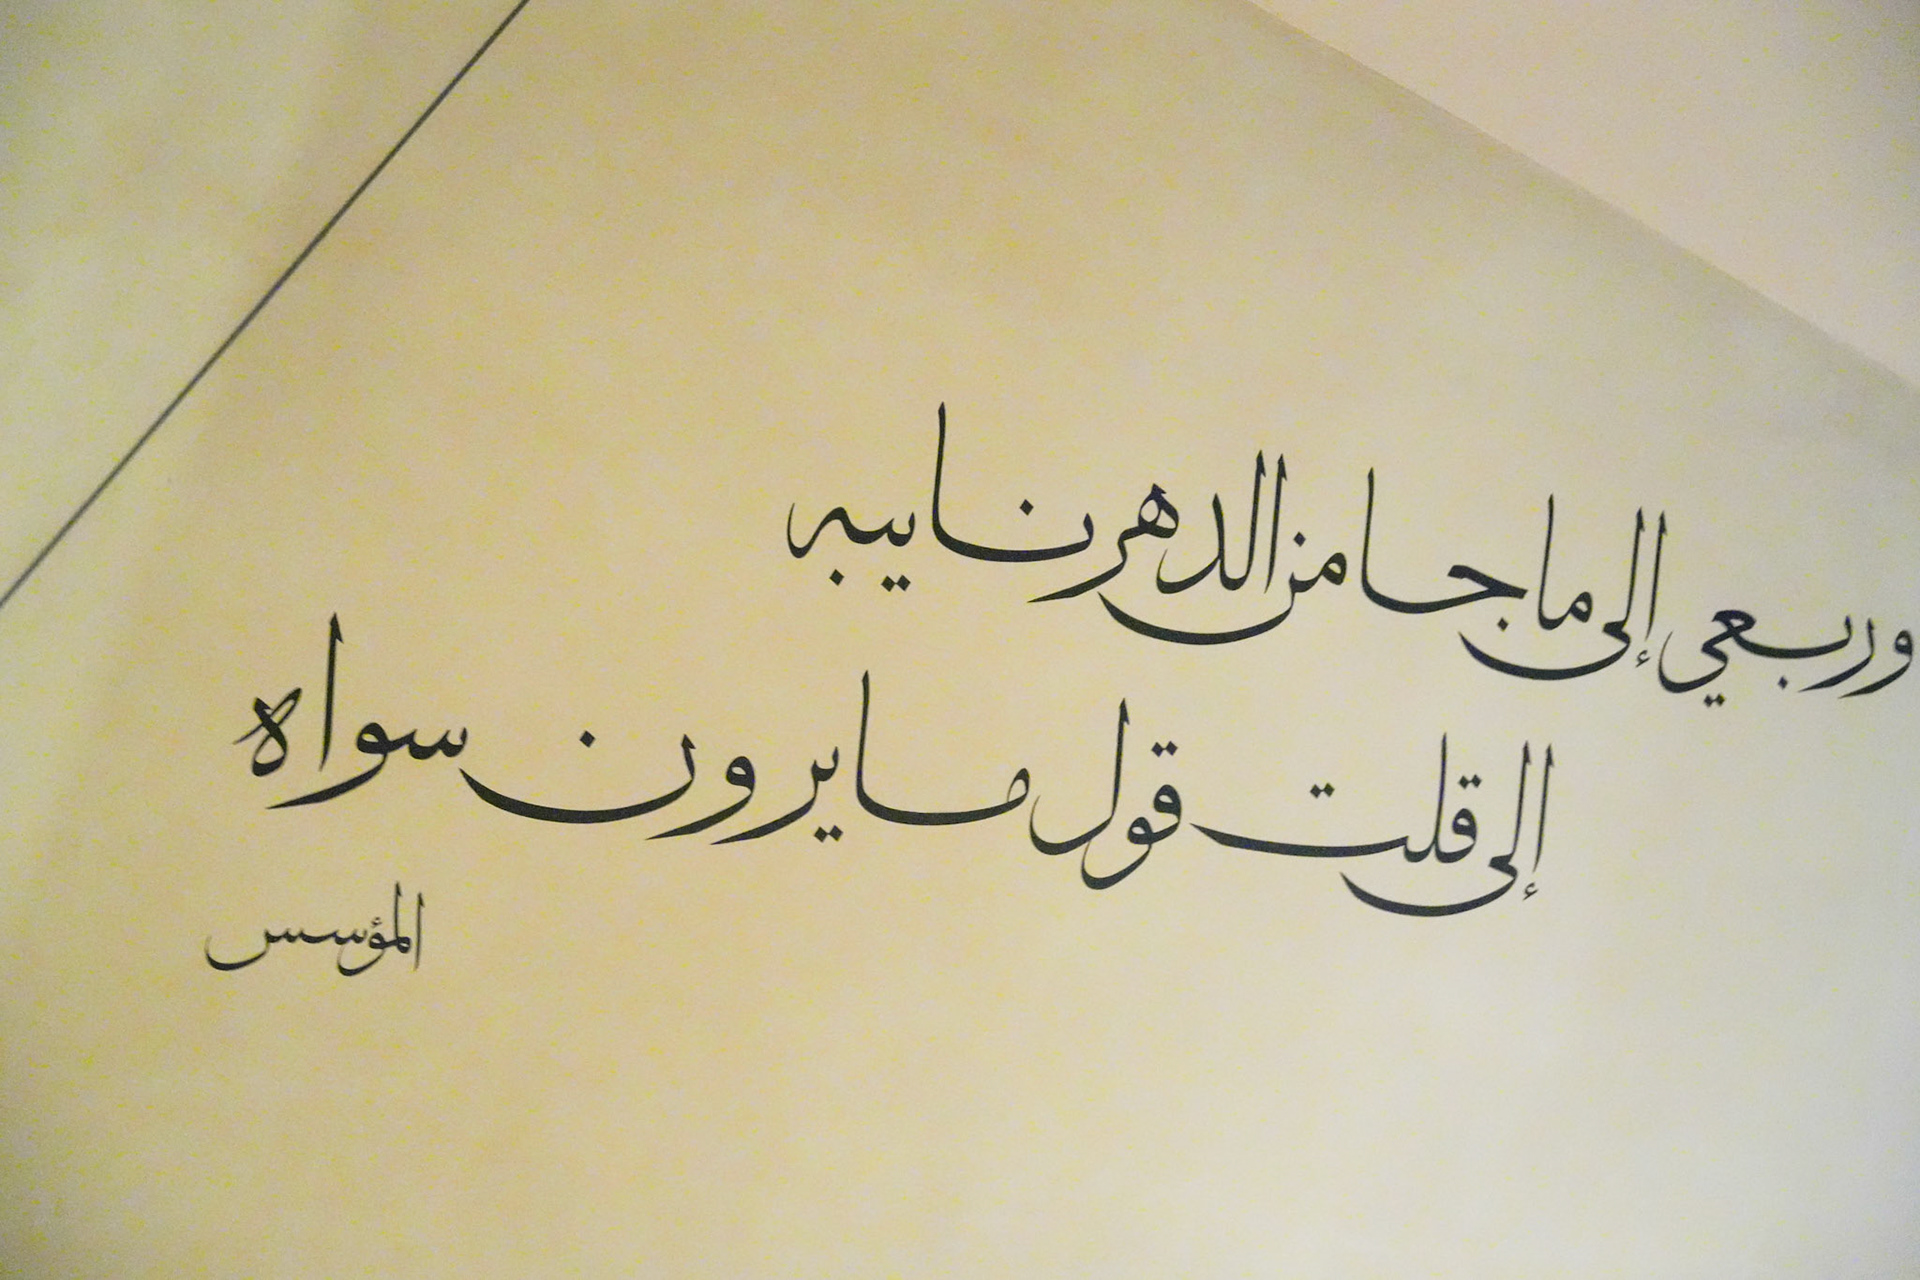 وربعي إلى ما جا من الدهر نايبه
إلى قلت قول ما يرون سواه
المؤسس